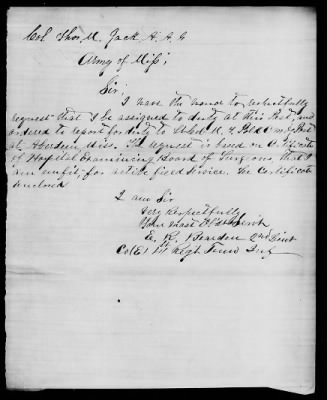 Col Thos. M. Jack A. A. G
Army of Miss;
Sir;
I have the honor to respectfully
request that I be assigned to duty at this Post, and
ordered to report for duty to
at Aberdeen Miss. The request is based on Certificate
of Hospital Examining Board of Surgeons, that I
am unfit, for active field Service. The Certificate
enclosed
I am Sir
Very Respectfully
Your most Obt Servt
E. R. Bearden 2nd Lieut
Co (E) 1st Regt Tenn Inf